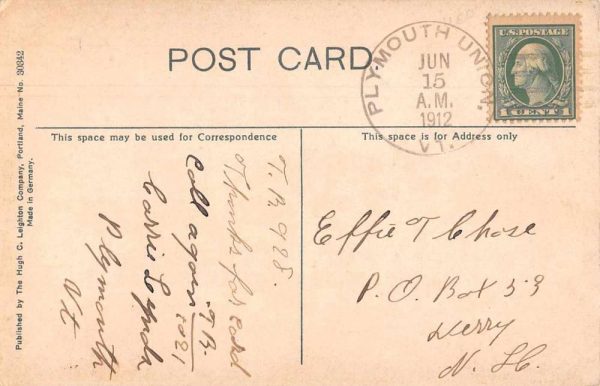 POST CARD
PLYMOUTH UNION,
JUN
15
A.M.
1912
VT.
U.S. POSTAGE
1 CENT 1
This space may be used for Correspondence
This space is for Address only
T.R. 928.
Thanks for card
Call again
T.R.
1021
Carrie L
Plymouth
Vt
Effie T Chase
P.O. Box 53
Derry
N.H.
Published by The Hugh C. Leighton Company, Portland, Maine No. 30342
Made in Germany.